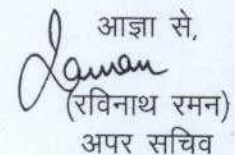 आज्ञा से,
Raman
(रविनाथ रमन)
अपर सचिव